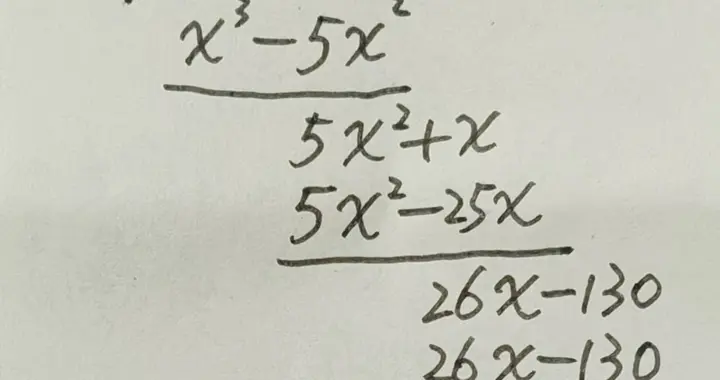 x³-5x²
5x²+x
5x²-25x
26x-130
26x-130